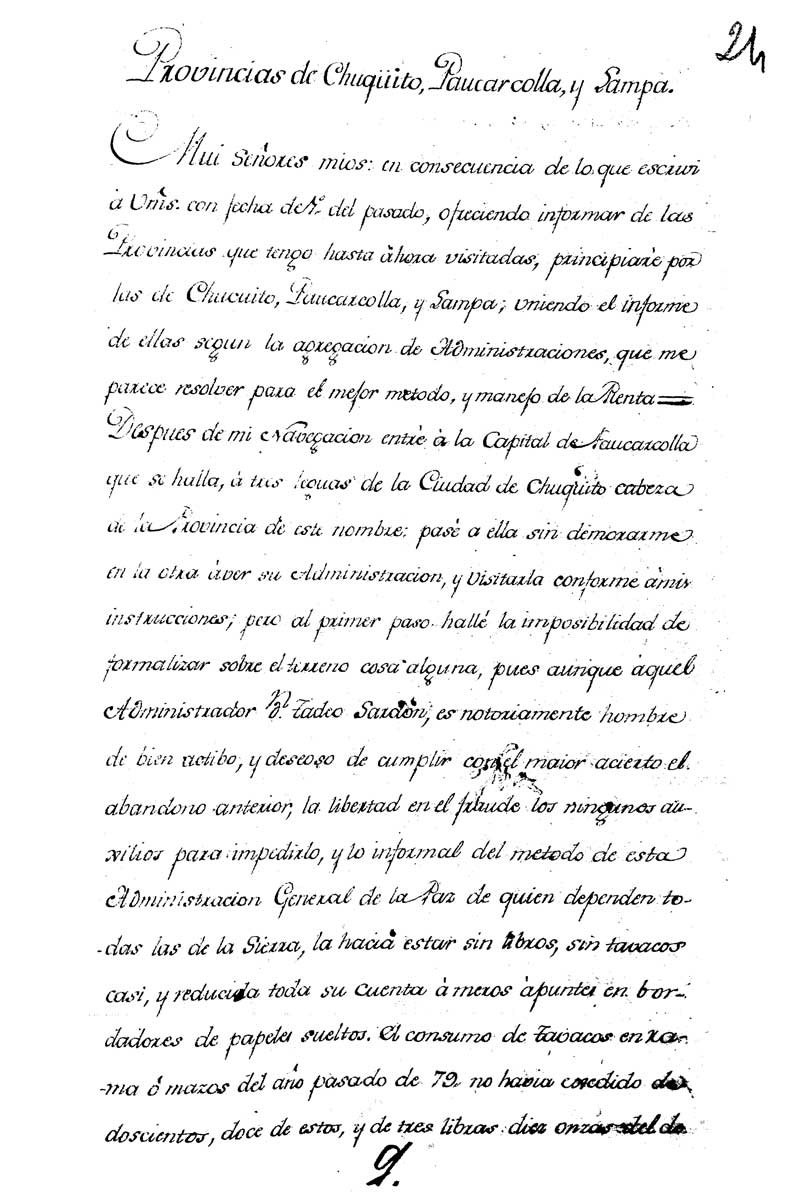 24
Provincias de Chuqüito, Paucarcolla, y Lampa.
Mui Señores mios: en consecuencia de lo que escrivi
à Vms. con fecha de 1º del pasado, ofreciendo informar de las
Provincias que tengo hasta àhora visitadas, principiarè por
las de Chucuito, Paucarcolla, y Lampa; uniendo el informe
de ellas segun la agregacion de Administraciones, que me
parece resolver para el mejor metodo, y manejo de la Renta
Despues de mi Navegacion entrè à la Capital de Paucarcolla
que se halla, à tres leguas de la Ciudad de Chuqüito cabeza
de la Provincia de este nombre: pasè a ella sin demorarme
en la otra àver su Administracion, y visitarla conforme àmis
instrucciones; pero al primer paso hallè la imposibilidad de
formalizar sobre el terreno cosa alguna, pues aunque àquel
Administrador Dn. Tadeo Sardòn, es notoriamente hombre
de bien actibo, y deseoso de cumplir con el maior acierto el
abandono anterior, la libertad en el fraude los ningunos au-
xilios para impedirlo, y lo informal del metodo de esta
Administracion General de la Paz de quien dependen to-
-das las de la Sierra, la hacià estar sin libros, sin tavacos
casi, y reducida toda su cuenta à meros àpuntes en bor-
dadores de papeles sueltos. El consumo de Tavacos en ra-
-ma ò mazos del año pasado de 79 no havia excedido de
doscientos, doce de estos, y de tres libras diez onzas del de
9.